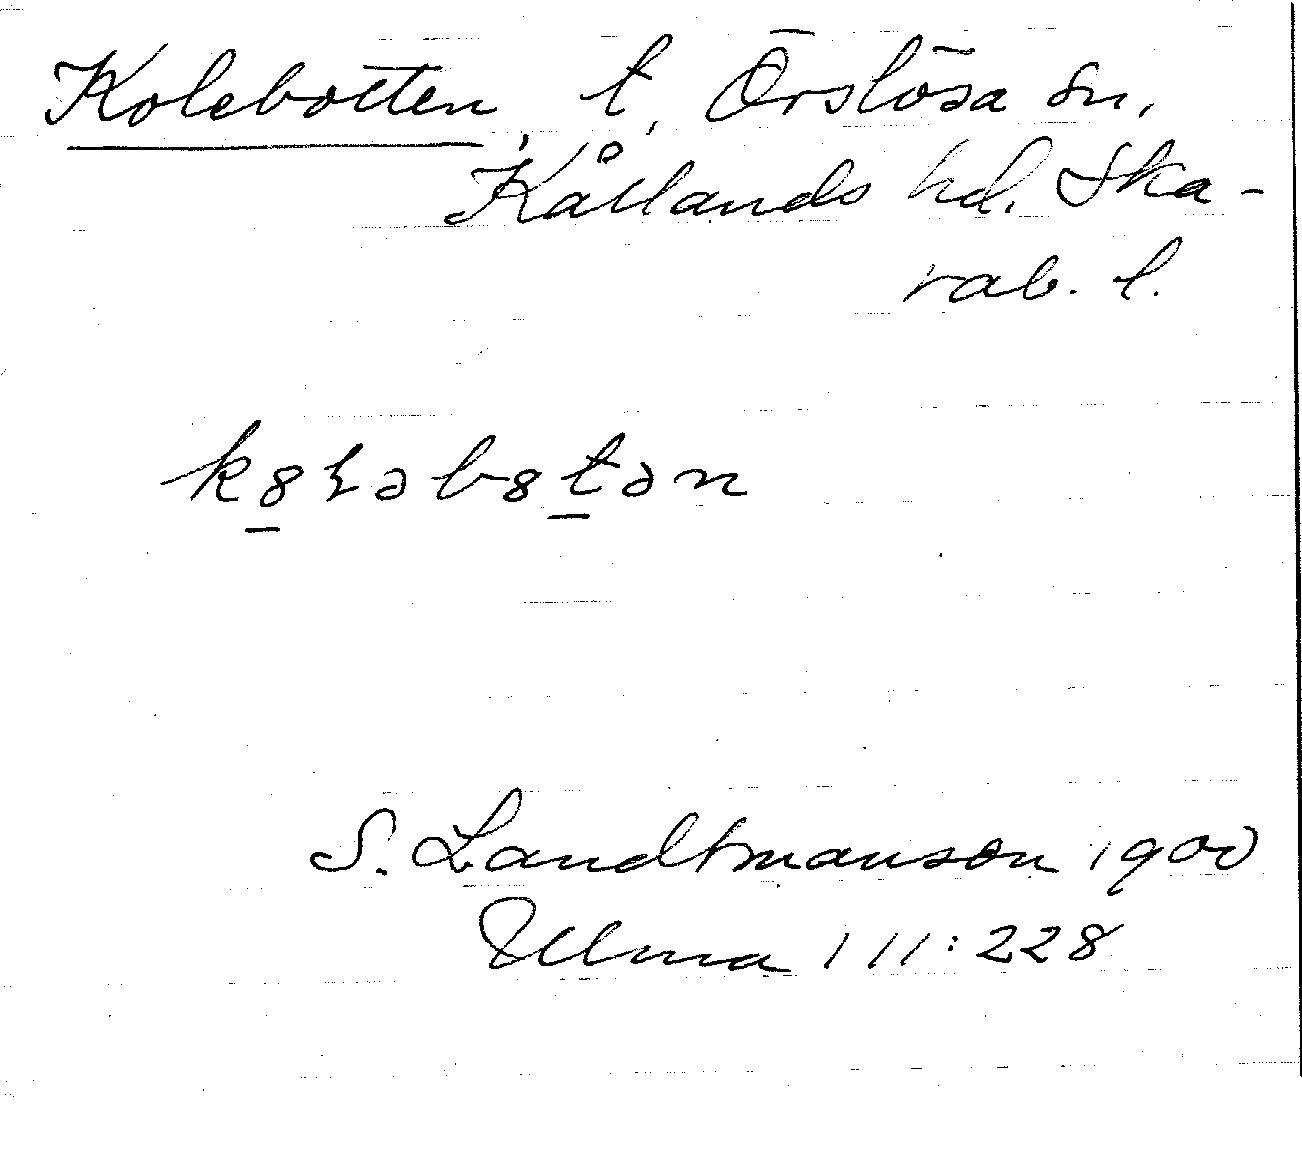 Kolebotten, t, Örslösa sn,
Kållands hd. Ska-
rab. l.
k8ɽəb8tən
S. Landtmanson 1900
Ulma 111:228